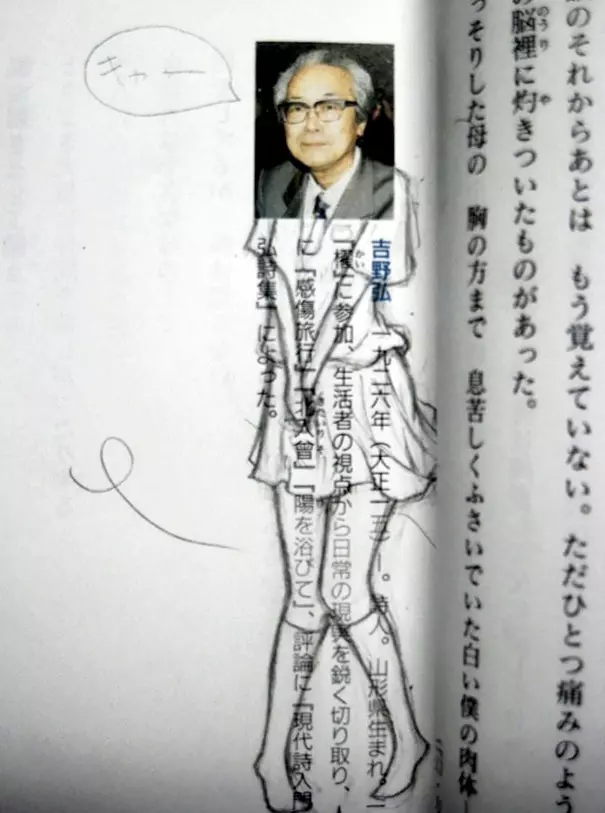 のそれからあとは　もう覚えていない。ただひとつ痛みのよう
の脳裡に灼きついたものがあった。
のうり
や
っそりした母の　胸の方まで　息苦しくふさいでいた白い僕の肉体―
キャー
吉野弘　一九二六年（大正一五）―。詩人。山形県生まれ。
「櫂」に参加、生活者の視点から日常の現実を鋭く切り取り、
かい
に「感傷旅行」「北入曽」「陽を浴びて」、評論に「現代詩入門
きたいりそ
弘詩集」によった。